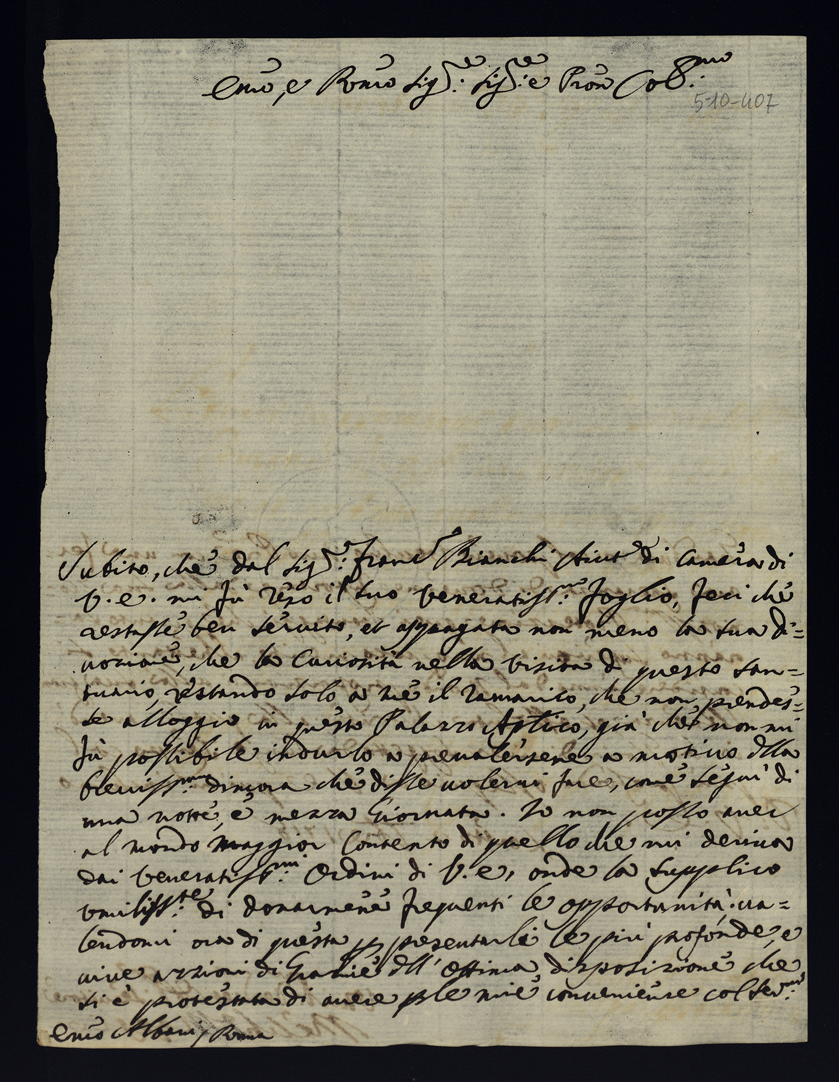 Emo, e Rmo Sig.re Sig.re e Pron Col.mo
5-10-407
Subito, che dal Sig.re Franc.o Bianchi Aiut.e di Camera di
V. E. mi fù reso il suo veneratiss.mo foglio, feci che
restasse ben servito, et appagata non meno la sua di=
vozione, che la curiosità nella visita di questo San=
tuario, restando solo a me il ramarico, che non prendes=
se alloggio in questo Palazzo Aplico, già che non mi
fù possibile indurlo a prevalersene a motivo della
breviss.ma dimora che disse volervi fare, come seguì di
una notte, e mezza giornata. Io non posso aver
al mondo maggior contento di quello che mi deriva
dai veneratiss.mi Ordini di V. E., onde la supplico
umiliss.te di donarmene frequenti le opportunità: va=
lendomi ora di questa p presentarle le più profonde, e
vive azzioni di Grazie dell' ottima disposizione che
si è protestata di avere p le mie convenienze col Ser.mo
Emo Albani, Roma